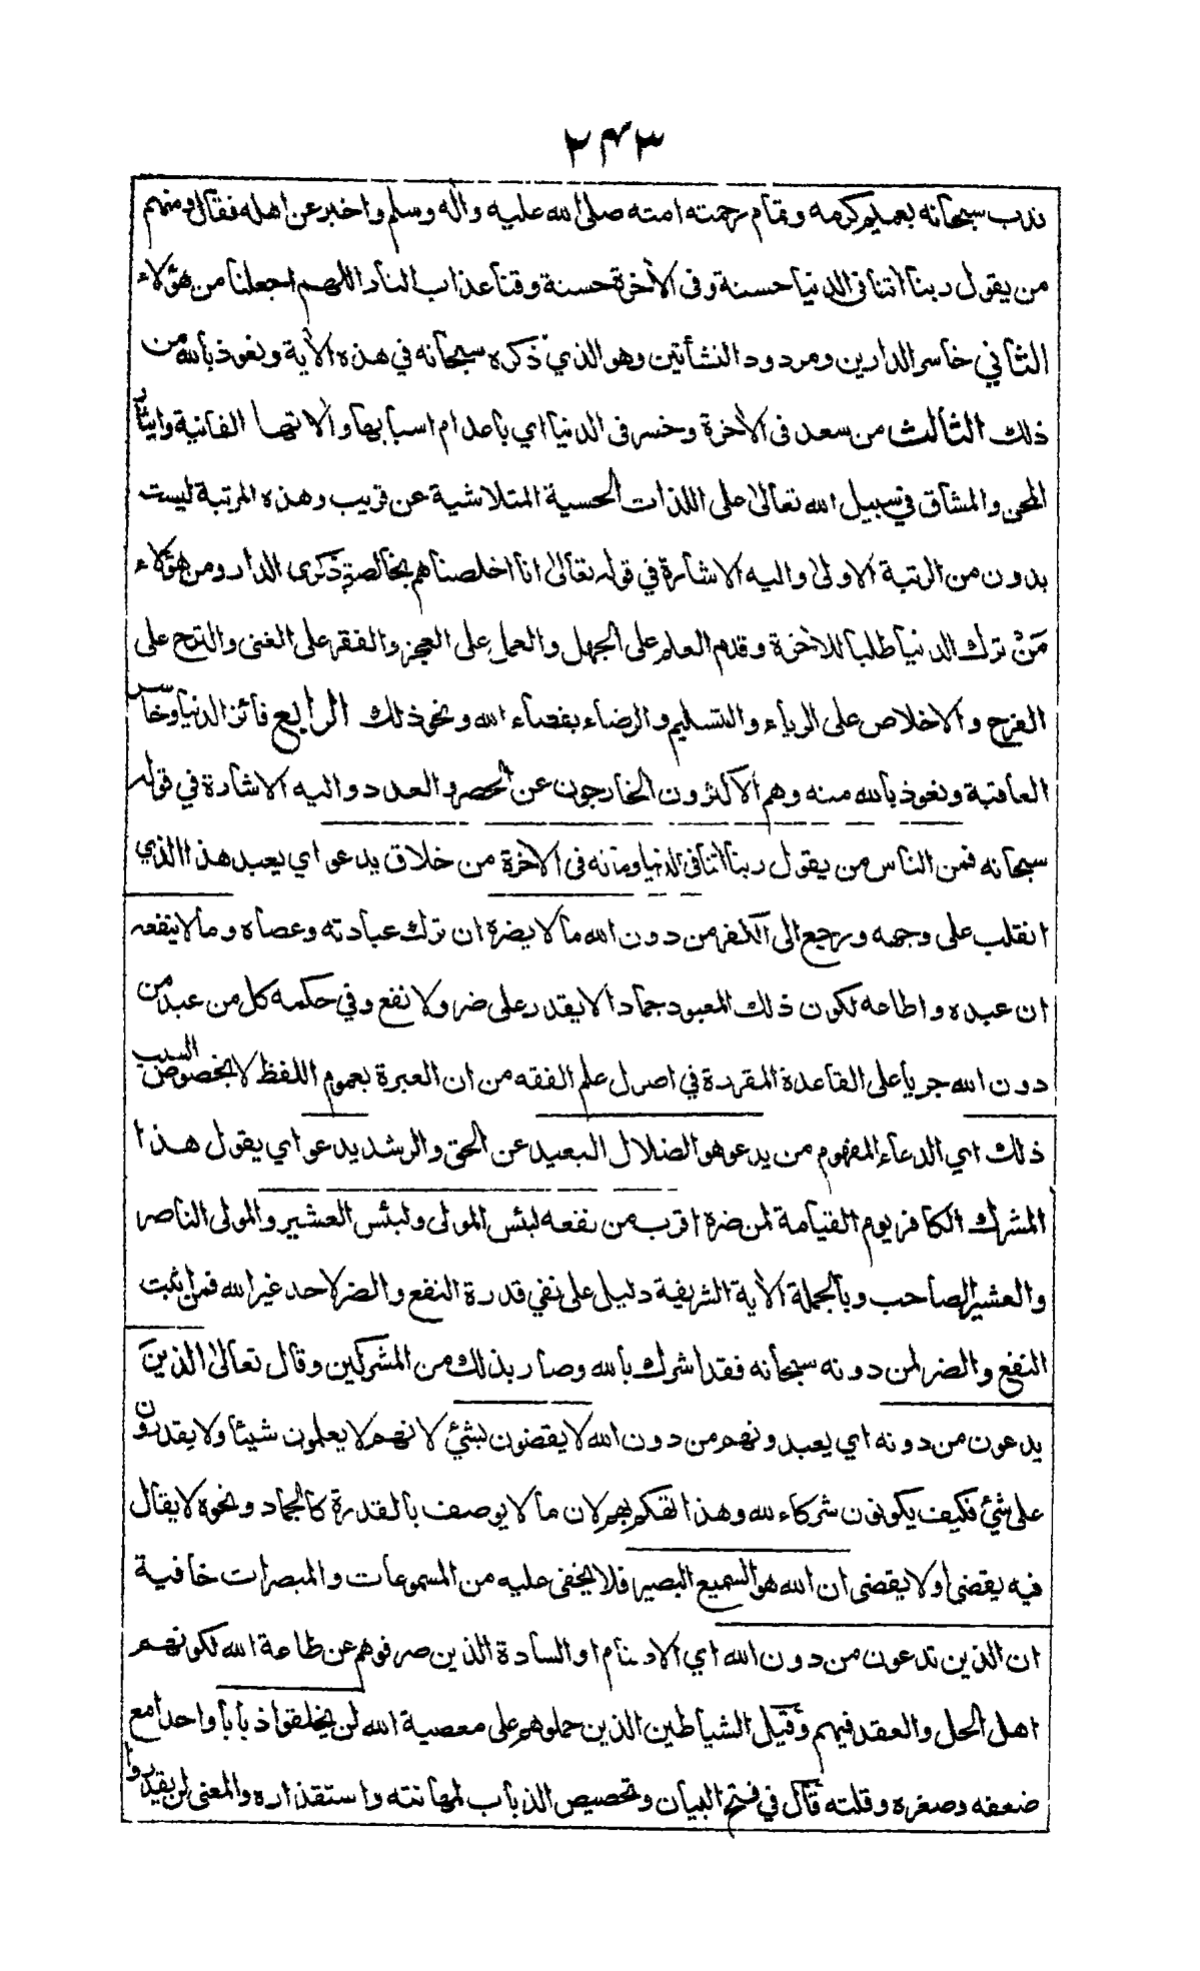 ٢٤٣
ندب سبحانه بعميم كرمه وتمام رحمته امته صلى الله عليه واله وسلم واخبر عن اهله فقال ومنهم
من يقول ربنا اتنا فى الدنيا حسنة وفى الآخرة حسنة وقنا عذاب النار اللهم اجعلنا من هؤلاء
الثاني خاسر الدارين ومردود النشأتين وهو الذي ذكره سبحانه في هذه الآية ونعوذ بالله من
ذلك الثالث من سعد فى الآخرة وخسر فى الدنيا اي باعدام اسبابها وآلاتها الفانية وايثار
المحن والمشاق في سبيل الله تعالى على اللذات الحسية المتلاشية عن قريب وهذه المرتبة ليست
بدون من الرتبة الاولى واليه الاشارة في قوله تعالى انا اخلصناهم بخالصة ذكرى الدار ومن هؤلاء
مَنْ ترك الدنيا طلبا للآخرة وقدم العلم على الجهل والعمل على العجز والفقر على الغنى والترح على
الفرح والاخلاص على الرياء والتسليم والرضاء بقضاء الله ونحو ذلك الرابع فائز الدنيا وخاسر
العاقبة ونعوذ بالله منه وهم الاكثرون الخارجون عن الحصر والعدد واليه الاشارة في قوله
سبحانه فمن الناس من يقول ربنا اتنا فى الدنيا وماله فى الآخرة من خلاق يدعو اي يعبد هذا الذي
انقلب على وجهه ورجع الى الكفر من دون الله ما لا يضره ان ترك عبادته وعصاه وما لا ينفعه
ان عبده واطاعه لكون ذلك المعبود جمادا لا يقدر على ضر ولا نفع وفي حكمه كل من عبد من
دون الله جريا على القاعدة المقررة في اصول علم الفقه من ان العبرة بعموم اللفظ لا بخصوص السبب
ذلك اي الدعاء المفهوم من يدعو هو الضلال البعيد عن الحق والرشد يدعو اي يقول هذا
المشرك الكافر يوم القيامة لمن ضره اقرب من نفعه لبئس المولى ولبئس العشير والمولى الناصر
والعشير الصاحب وبالجملة الآية الشريفة دليل على نفي قدرة النفع والضر لاحد غير الله فمن اثبت
النفع والضر لمن دونه سبحانه فقد اشرك بالله وصار بذلك من المشركين وقال تعالى الذين
يدعون من دونه اي يعبدونهم من دون الله لا يقضون بشئ لانهم لا يعلمون شيئا ولا يقدرون
على شئ فكيف يكونون شركاء لله وهذا تهكم بهم لان ما لا يوصف بالقدرة كالجماد ونحوه لا يقال
فيه يقضى او لا يقضى ان الله هو السميع البصير فلا يخفى عليه من المسموعات والمبصرات خافية
ان الذين تدعون من دون الله اي الاصنام او السادة الذين صرفوهم عن طاعة الله لكونهم
اهل الحل والعقد فيهم وقيل الشياطين الذين حملوهم على معصية الله لن يخلقوا ذبابا واحدا مع
ضعفه وصغره وقلته قال في فتح البيان وتخصيص الذباب لمهانته واستقذاره والمعنى لن يقدروا